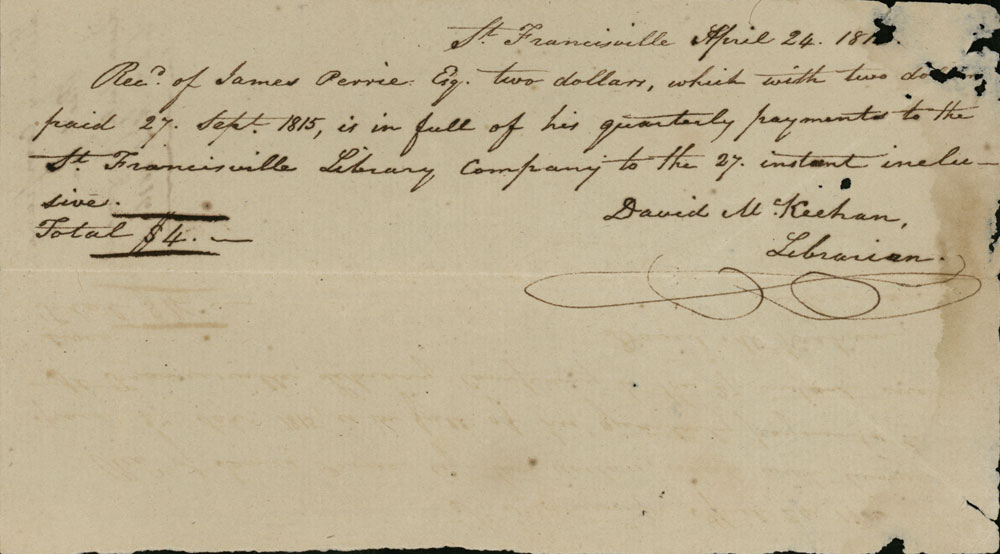 St. Francisville April 24. 181
Recd. of James Perrie Esq. two dollars, which with two dollars
paid 27. Sept. 1815, is in full of his quarterly payments to the
St. Francisville Library Company to the 27. instant inclu-
sive.
Total $4.—
David McKeehan,
Librarian.